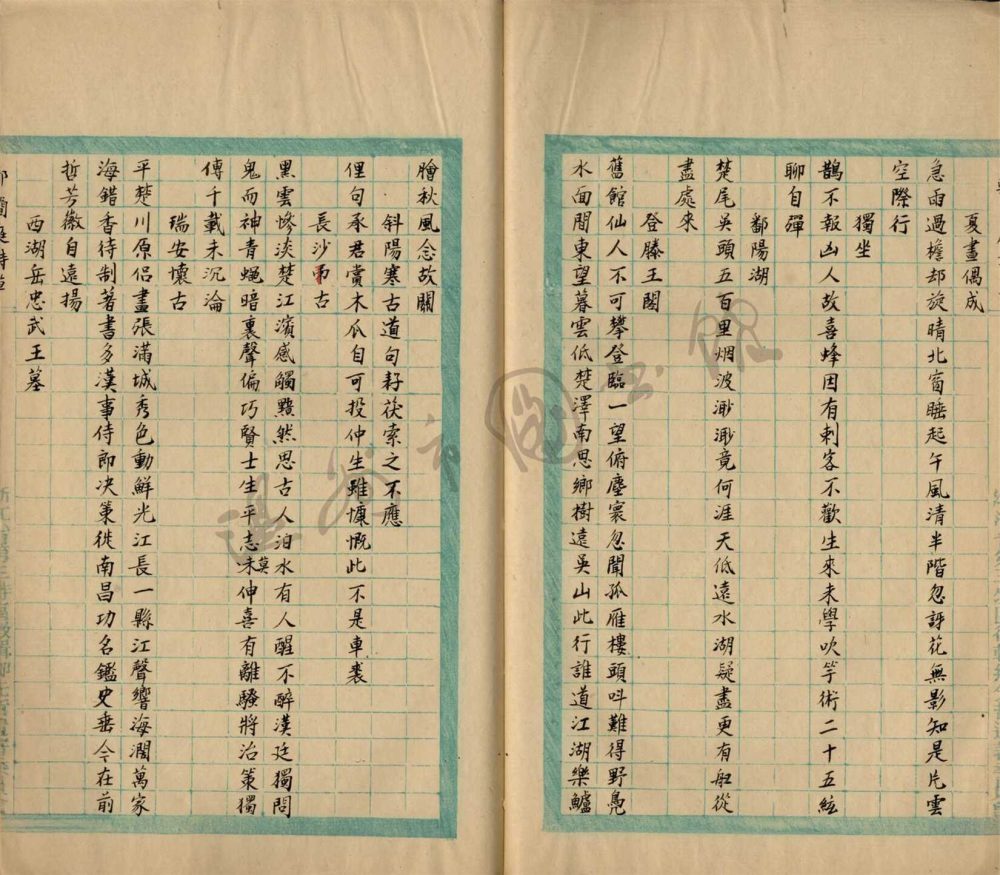 夏晝偶成
急雨過檐却旋晴北窗睡起午風清半階忽訝花無影知是片雲
空際行
獨坐
鵲不報凶人故喜蜂因有刺客不歡生來未學吹竽術二十五絃
聊自彈
鄱陽湖
楚尾吳頭五百里烟波渺渺竟何涯天低遠水湖疑盡更有船從
盡處來
登滕王閣
舊館仙人不可攀登臨一望俯塵寰忽聞孤雁樓頭叫難得野鳧
水面閒東望暮雲低楚澤南思鄉樹遠吳山此行誰道江湖樂鱸
膾秋風念故關
斜陽寒古道句耔茯索之不應
俚句承君賞木瓜自可投仲生雖慷慨此不是車裘
長沙弔古
黑雲慘淡楚江濱感觸黯然思古人泊水有人醒不醉漢廷獨問
鬼而神青蠅暗裏聲偏巧賢士生平志未莫伸喜有離騷將治策獨
傳千載未沉淪
瑞安懷古
平楚川原侣畫張滿城秀色動鮮光江長一縣江聲響海濶萬家
海錯香待制著書多漢事侍郎决策徙南昌功名鑑史垂今在前
哲芳徽自遠揚
西湖岳忠武王墓